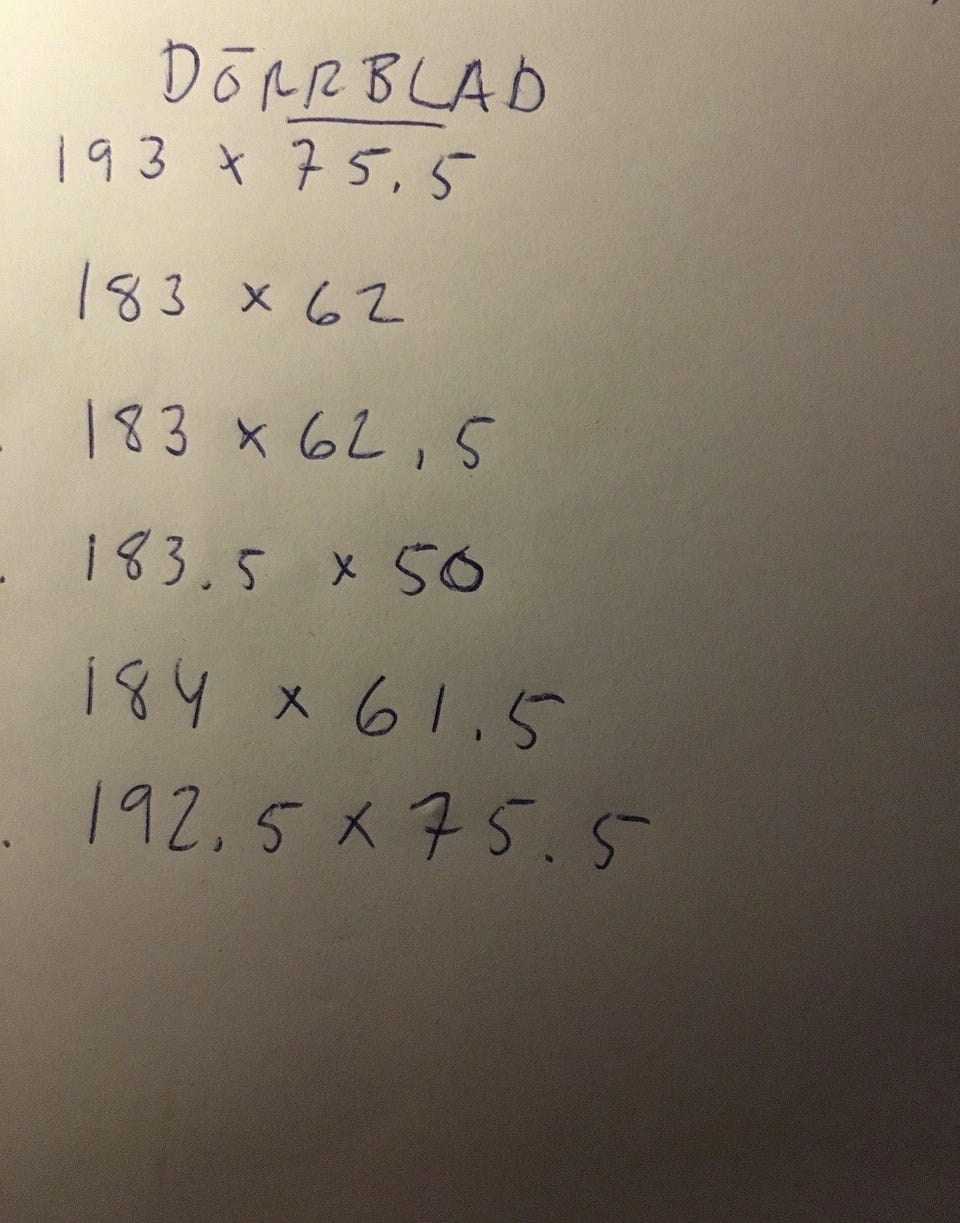 DÖRRBLAD
193 x 75.5
183 x 62
183 x 62,5
183.5 x 50
184 x 61.5
192.5 x 75.5